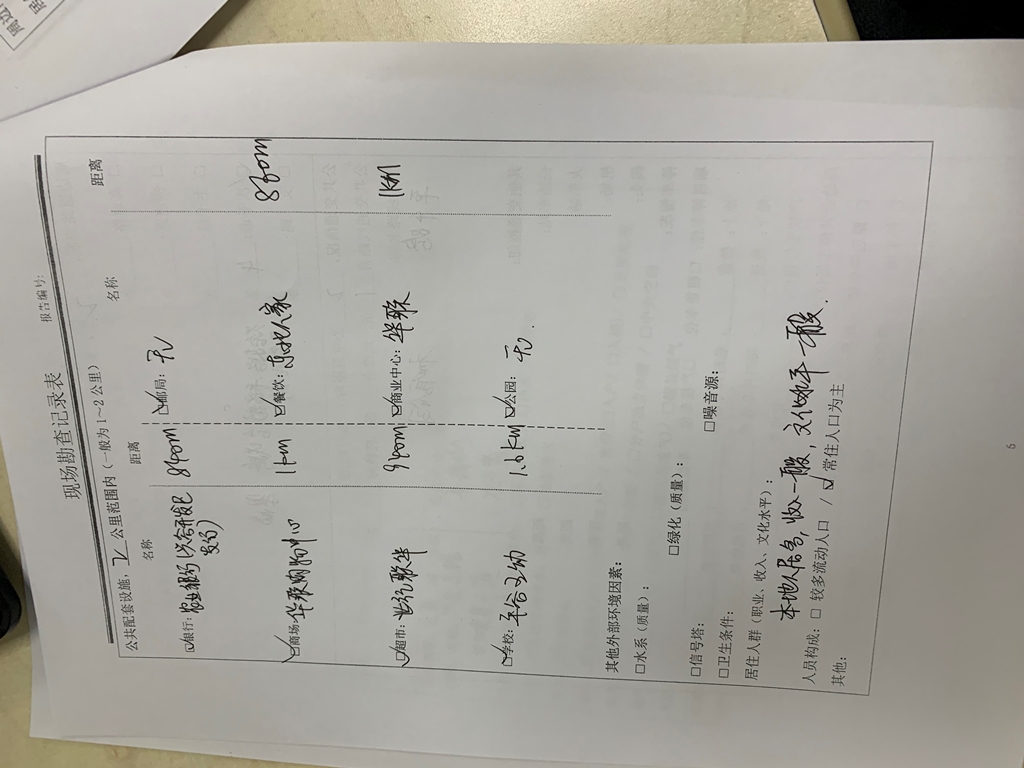 现场勘查记录表
报告编号:
公共配套设施: 2 公里范围内 (一般为 1~2 公里)
名称 距离 名称 距离
☑银行: 农业银行(兴谷开发区支行) 840m ☑邮局: 无
☑商场: 华联购物中心 1km ☑餐饮: 东北人家 860m
☑超市: 世纪联华 940m ☑商业中心: 华联 1km
☑学校: 平谷五幼 1.6km ☑公园: 无.
其他外部环境因素:
□水系 (质量): □绿化 (质量):
□信号塔: □噪音源:
□卫生条件:
居住人群 (职业、收入、文化水平):
本地人居多, 收入一般, 文化水平一般.
人员构成: □ 较多流动人口 / ☑ 常住人口为主
其他:
6